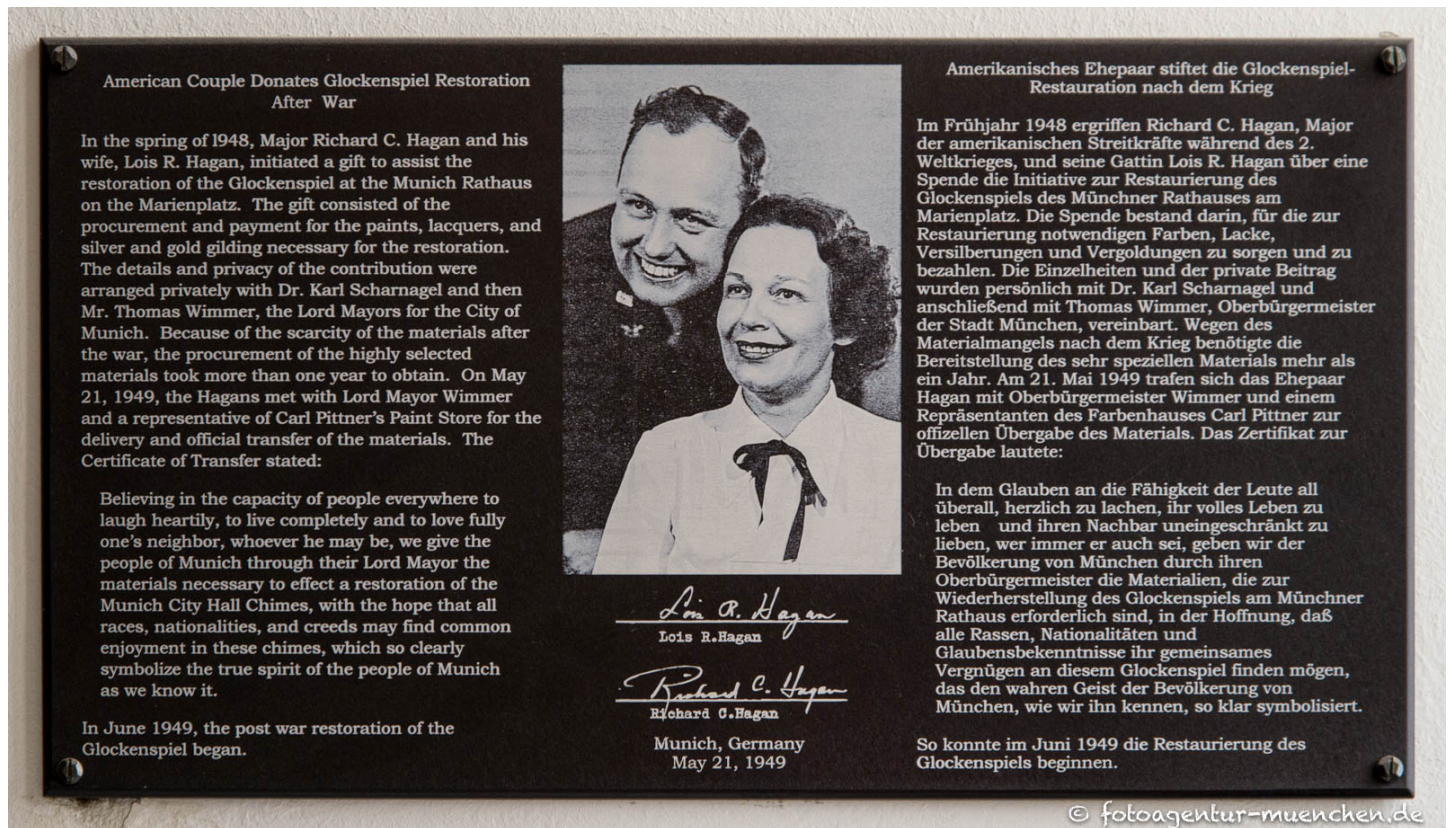 American Couple Donates Glockenspiel Restoration
After War
In the spring of 1948, Major Richard C. Hagan and his
wife, Lois R. Hagan, initiated a gift to assist the
restoration of the Glockenspiel at the Munich Rathaus
on the Marienplatz. The gift consisted of the
procurement and payment for the paints, lacquers, and
silver and gold gilding necessary for the restoration.
The details and privacy of the contribution were
arranged privately with Dr. Karl Scharnagel and then
Mr. Thomas Wimmer, the Lord Mayors for the City of
Munich. Because of the scarcity of the materials after
the war, the procurement of the highly selected
materials took more than one year to obtain. On May
21, 1949, the Hagans met with Lord Mayor Wimmer
and a representative of Carl Pittner's Paint Store for the
delivery and official transfer of the materials. The
Certificate of Transfer stated:
Believing in the capacity of people everywhere to
laugh heartily, to live completely and to love fully
one's neighbor, whoever he may be, we give the
people of Munich through their Lord Mayor the
materials necessary to effect a restoration of the
Munich City Hall Chimes, with the hope that all
races, nationalities, and creeds may find common
enjoyment in these chimes, which so clearly
symbolize the true spirit of the people of Munich
as we know it.
In June 1949, the post war restoration of the
Glockenspiel began.
Lois R. Hagan
Lois R.Hagan
Richard C. Hagan
Richard C.Hagan
Munich, Germany
May 21, 1949
Amerikanisches Ehepaar stiftet die Glockenspiel-
Restauration nach dem Krieg
Im Frühjahr 1948 ergriffen Richard C. Hagan, Major
der amerikanischen Streitkräfte während des 2.
Weltkrieges, und seine Gattin Lois R. Hagan über eine
Spende die Initiative zur Restaurierung des
Glockenspiels des Münchner Rathauses am
Marienplatz. Die Spende bestand darin, für die zur
Restaurierung notwendigen Farben, Lacke,
Versilberungen und Vergoldungen zu sorgen und zu
bezahlen. Die Einzelheiten und der private Beitrag
wurden persönlich mit Dr. Karl Scharnagel und
anschließend mit Thomas Wimmer, Oberbürgermeister
der Stadt München, vereinbart. Wegen des
Materialmangels nach dem Krieg benötigte die
Bereitstellung des sehr speziellen Materials mehr als
ein Jahr. Am 21. Mai 1949 trafen sich das Ehepaar
Hagan mit Oberbürgermeister Wimmer und einem
Repräsentanten des Farbenhauses Carl Pittner zur
offizellen Übergabe des Materials. Das Zertifikat zur
Übergabe lautete:
In dem Glauben an die Fähigkeit der Leute all
überall, herzlich zu lachen, ihr volles Leben zu
leben und ihren Nachbar uneingeschränkt zu
lieben, wer immer er auch sei, geben wir der
Bevölkerung von München durch ihren
Oberbürgermeister die Materialien, die zur
Wiederherstellung des Glockenspiels am Münchner
Rathaus erforderlich sind, in der Hoffnung, daß
alle Rassen, Nationalitäten und
Glaubensbekenntnisse ihr gemeinsames
Vergnügen an diesem Glockenspiel finden mögen,
das den wahren Geist der Bevölkerung von
München, wie wir ihn kennen, so klar symbolisiert.
So konnte im Juni 1949 die Restaurierung des
Glockenspiels beginnen.
© fotoagentur-muenchen.de